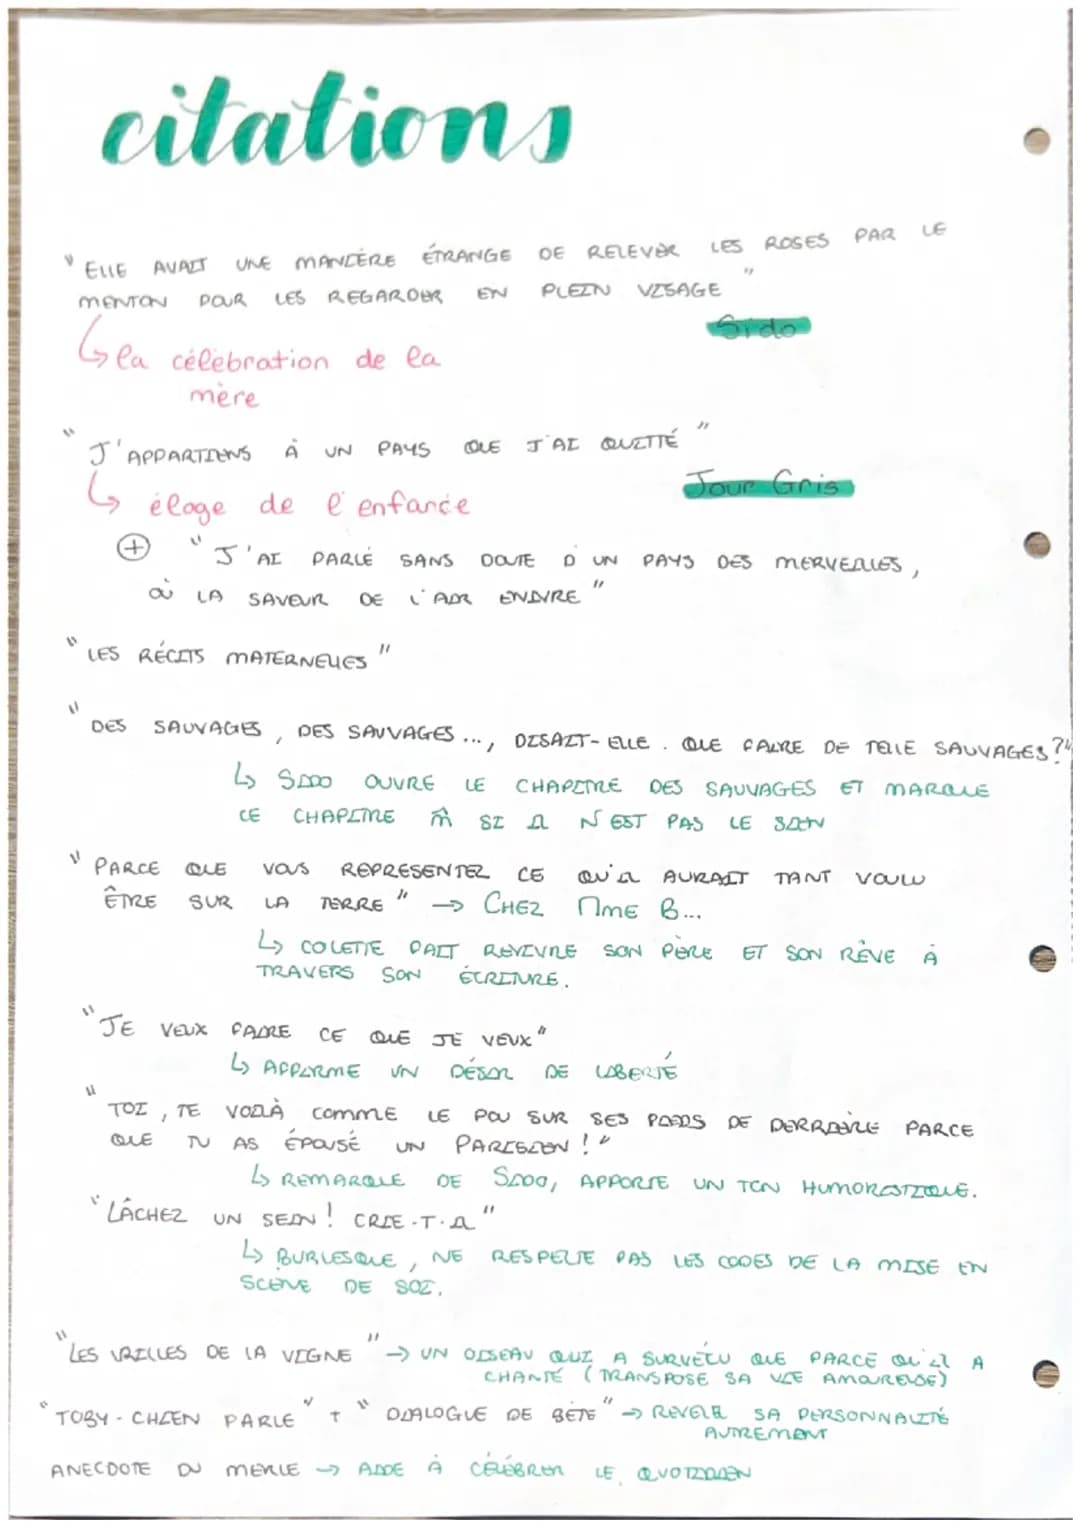 citations
"ELLE AVAIT UNE MANIÈRE ÉTRANGE DE RELEVER LES ROSES PAR LE
MENTON POUR LES REGARDER EN PLEIN VISAGE"
Sido
↳ la célébration de la
mère
"J'APPARTIENS À UN PAYS QUE J'AI QUITTÉ"
Jour Gris
↳ éloge de l'enfance
⊕ "J'AI PARLÉ SANS DOUTE D'UN PAYS DES MERVEILLES,
OÙ LA SAVEUR DE L'AIR ENIVRE"
"LES RÉCITS MATERNELLES"
"DES SAUVAGES, DES SAUVAGES..., DISAIT-ELLE. QUE FAIRE DE TELLE SAUVAGES?"
↳ SIDO OUVRE LE CHAPITRE DES SAUVAGES ET MARQUE
CE CHAPITRE m̂ SI IL N'EST PAS LE SIEN
"PARCE QUE VOUS REPRESENTEZ CE QU'IL AURAIT TANT VOULU
ÊTRE SUR LA TERRE" → CHEZ Mme B...
↳ COLETTE FAIT REVIVRE SON PÈRE ET SON RÊVE À
TRAVERS SON ÉCRITURE.
"JE VEUX FAIRE CE QUE JE VEUX"
↳ AFFIRME UN DÉSIR DE LIBERTÉ
"TOI, TE VOILÀ COMME LE POU SUR SES PIEDS DE DERRIÈRE PARCE
QUE TU AS ÉPOUSÉ UN PARISIEN!"
↳ REMARQUE DE SIDO, APPORTE UN TON HUMORISTIQUE.
"LÂCHEZ UN SEIN! CRIE-T-IL"
↳ BURLESQUE, NE RESPECTE PAS LES CODES DE LA MISE EN
SCENE DE SOI.
"LES VRILLES DE LA VIGNE" → UN OISEAU QUI A SURVÉCU QUE PARCE QU'IL A
CHANTÉ (TRANSPOSE SA VIE AMOUREUSE)
"TOBY-CHIEN PARLE" + "DIALOGUE DE BÊTE" → REVELE SA PERSONNALITÉ
AUTREMENT
ANECDOTE DU MERLE → AIDE À CÉLÉBRER LE QUOTIDIEN